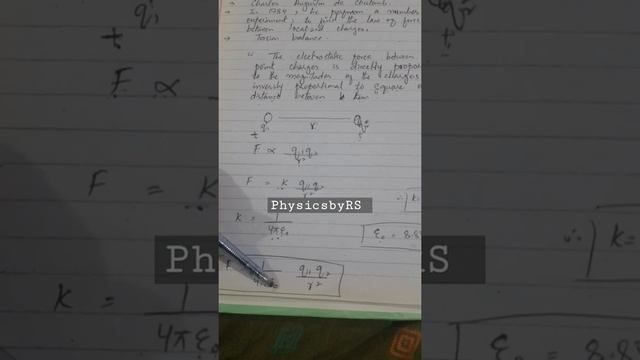 → Charles Augustin de Coulomb.
→ In 1784, he perform a number
experiment, to find the law of force
between localised charges.
→ Torsion balance.
" The electrostatic force between
point charges is directly propor
to the magnitudes of the charges
inversly proportional to square o
distance between them
q₁ r q₂
F ∝ q₁q₂/r²
F = K q₁q₂/r²
PhysicsbyRS
K = 1/4πε₀
∴ K=
ε₀ = 8.8
F = 1/4πε₀ q₁q₂/r²